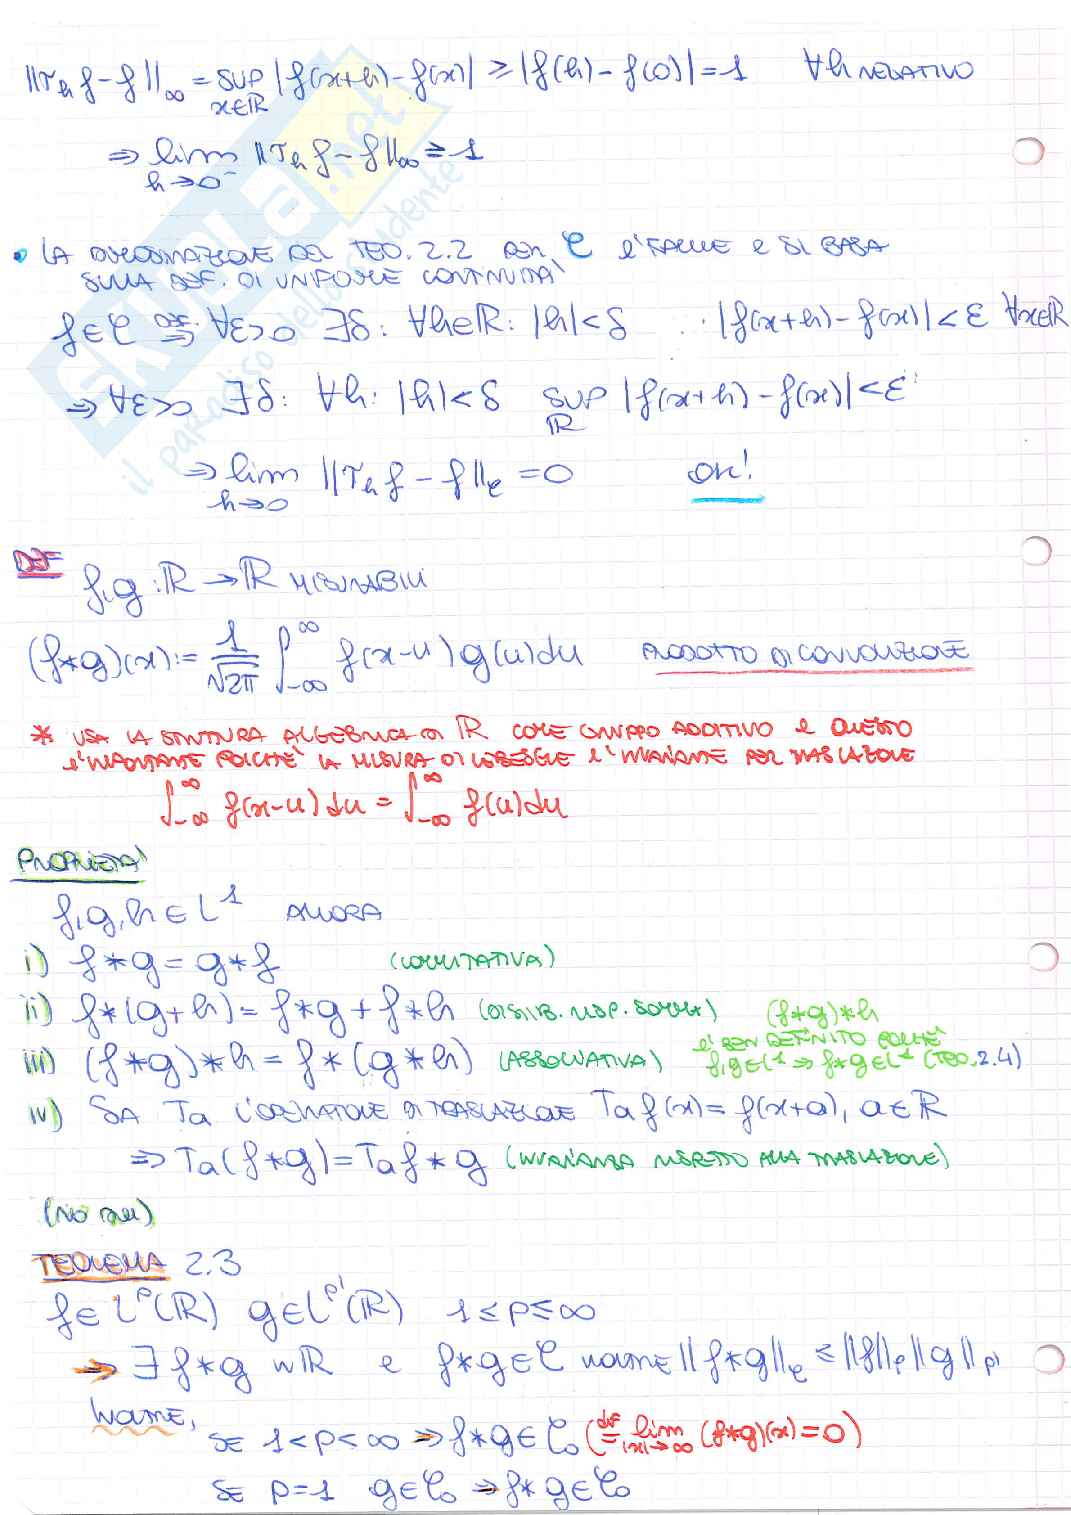 ‖τₕf − f‖∞ = SUP x∈ℝ |f(x+h) − f(x)| ≥ |f(h) − f(0)| = 1 ∀h NEGATIVO
⇒ lim h→0⁻ ‖τₕf − f‖∞ ≥ 1
• LA DIMOSTRAZIONE DEL TEO. 2.2 PER 𝒞 E' FACILE E SI BASA
SULLA DEF. DI UNIFORME CONTINUITA'
f∈𝒞 DEF. ⇒ ∀ε>0 ∃δ: ∀h∈ℝ: |h|<δ |f(x+h) − f(x)| < ε ∀x∈ℝ
⇒ ∀ε>0 ∃δ: ∀h: |h|<δ SUP ℝ |f(x+h) − f(x)| < ε
⇒ lim h→0 ‖τₕf − f‖𝒞 = 0 OK!
DEF f,g: ℝ → ℝ MISURABILI
(f*g)(x) := 1/√2π ∫₋∞^∞ f(x−u)g(u)du PRODOTTO DI CONVOLUZIONE
* USA LA STRUTTURA ALGEBRICA DI ℝ COME GRUPPO ADDITIVO E QUESTO
E' IMPORTANTE POICHE' LA MISURA DI LEBESGUE E' INVARIANTE PER TRASLAZIONE
∫₋∞^∞ f(x−u)du = ∫₋∞^∞ f(u)du
PROPRIETA'
f,g,h ∈ L¹ ALLORA
i) f*g = g*f (COMMUTATIVA)
ii) f*(g+h) = f*g + f*h (DISTRIB. RISP. SOMMA) (f*g)*h
E' BEN DEFINITO POICHE'
iii) (f*g)*h = f*(g*h) (ASSOCIATIVA) f,g∈L¹ ⇒ f*g∈L¹ (TEO. 2.4)
iv) SIA Ta L'OPERATORE DI TRASLAZIONE Ta f(x) = f(x+a), a∈ℝ
⇒ Ta(f*g) = Ta f * g (INVARIANZA RISPETTO ALLA TRASLAZIONE)
(NO DIM)
TEOREMA 2.3
f∈L^p(ℝ) g∈L^p'(ℝ) 1≤p≤∞
⇒ ∃ f*g in ℝ e f*g∈𝒞 inoltre ‖f*g‖𝒞 ≤ ‖f‖p ‖g‖p'
Inoltre,
SE 1<p<∞ ⇒ f*g∈𝒞₀ (def = lim |x|→∞ (f*g)(x) = 0)
SE p=1 g∈𝒞₀ ⇒ f*g∈𝒞₀
SKUOLA.net
il paradiso dello studente